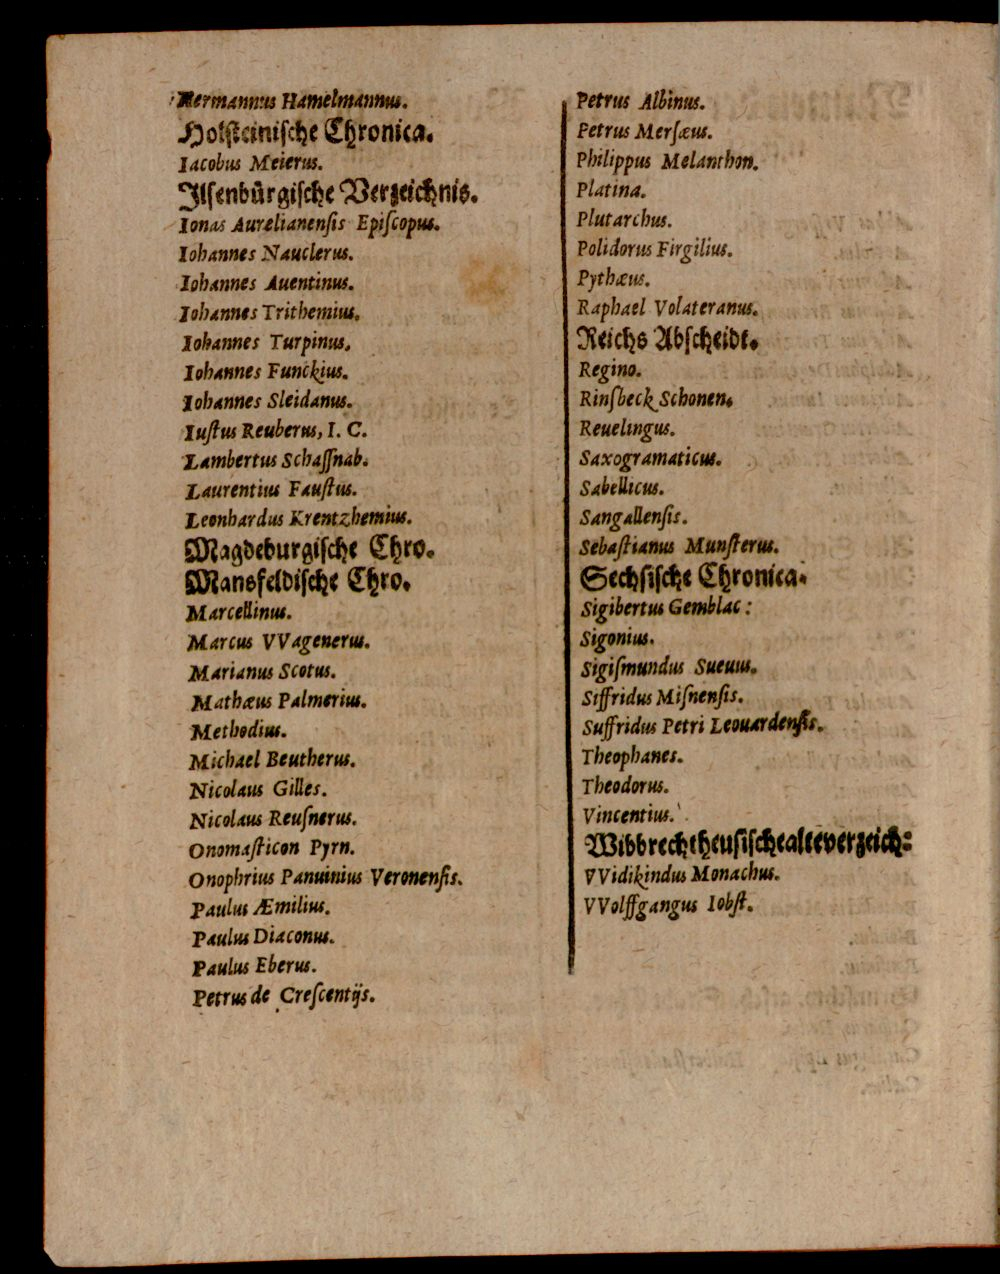 Hermannus Hamelmannus.
Holsteinische Chronica.
Iacobus Meierus.
Ilsenbürgische Verzeichnis.
Ionas Aurelianensis Episcopus.
Iohannes Nauclerus.
Iohannes Auentinus.
Iohannes Trithemius.
Iohannes Turpinus.
Iohannes Funckius.
Iohannes Sleidanus.
Iustus Reuberus, I. C.
Lambertus Schaffnab.
Laurentius Faustus.
Leonhardus Krentzhemius.
Magdeburgische Chro.
Mansfeldische Chro.
Marcellinus.
Marcus VVagenerus.
Marianus Scotus.
Mathæus Palmerius.
Methodius.
Michael Beutherus.
Nicolaus Gilles.
Nicolaus Reusnerus.
Onomasticon Pyrn.
Onophrius Panuinius Veronensis.
Paulus Æmilius.
Paulus Diaconus.
Paulus Eberus.
Petrus de Crescentijs.
Petrus Albinus.
Petrus Mersæus.
Philippus Melanthon.
Platina.
Plutarchus.
Polidorus Firgilius.
Pythæus.
Raphael Volateranus.
Reichs Abscheidt.
Regino.
Rinsbeck Schonen.
Reuelingus.
Saxogramaticus.
Sabellicus.
Sangallensis.
Sebastianus Munsterus.
Sechsische Chronica.
Sigibertus Gemblac:
Sigonius.
Sigismundus Sueuus.
Siffridus Misnensis.
Suffridus Petri Leouardensis.
Theophanes.
Theodorus.
Vincentius.
Wibbrechtheusischealteverzeich:
VVidikindus Monachus.
VVolffgangus Iobst.